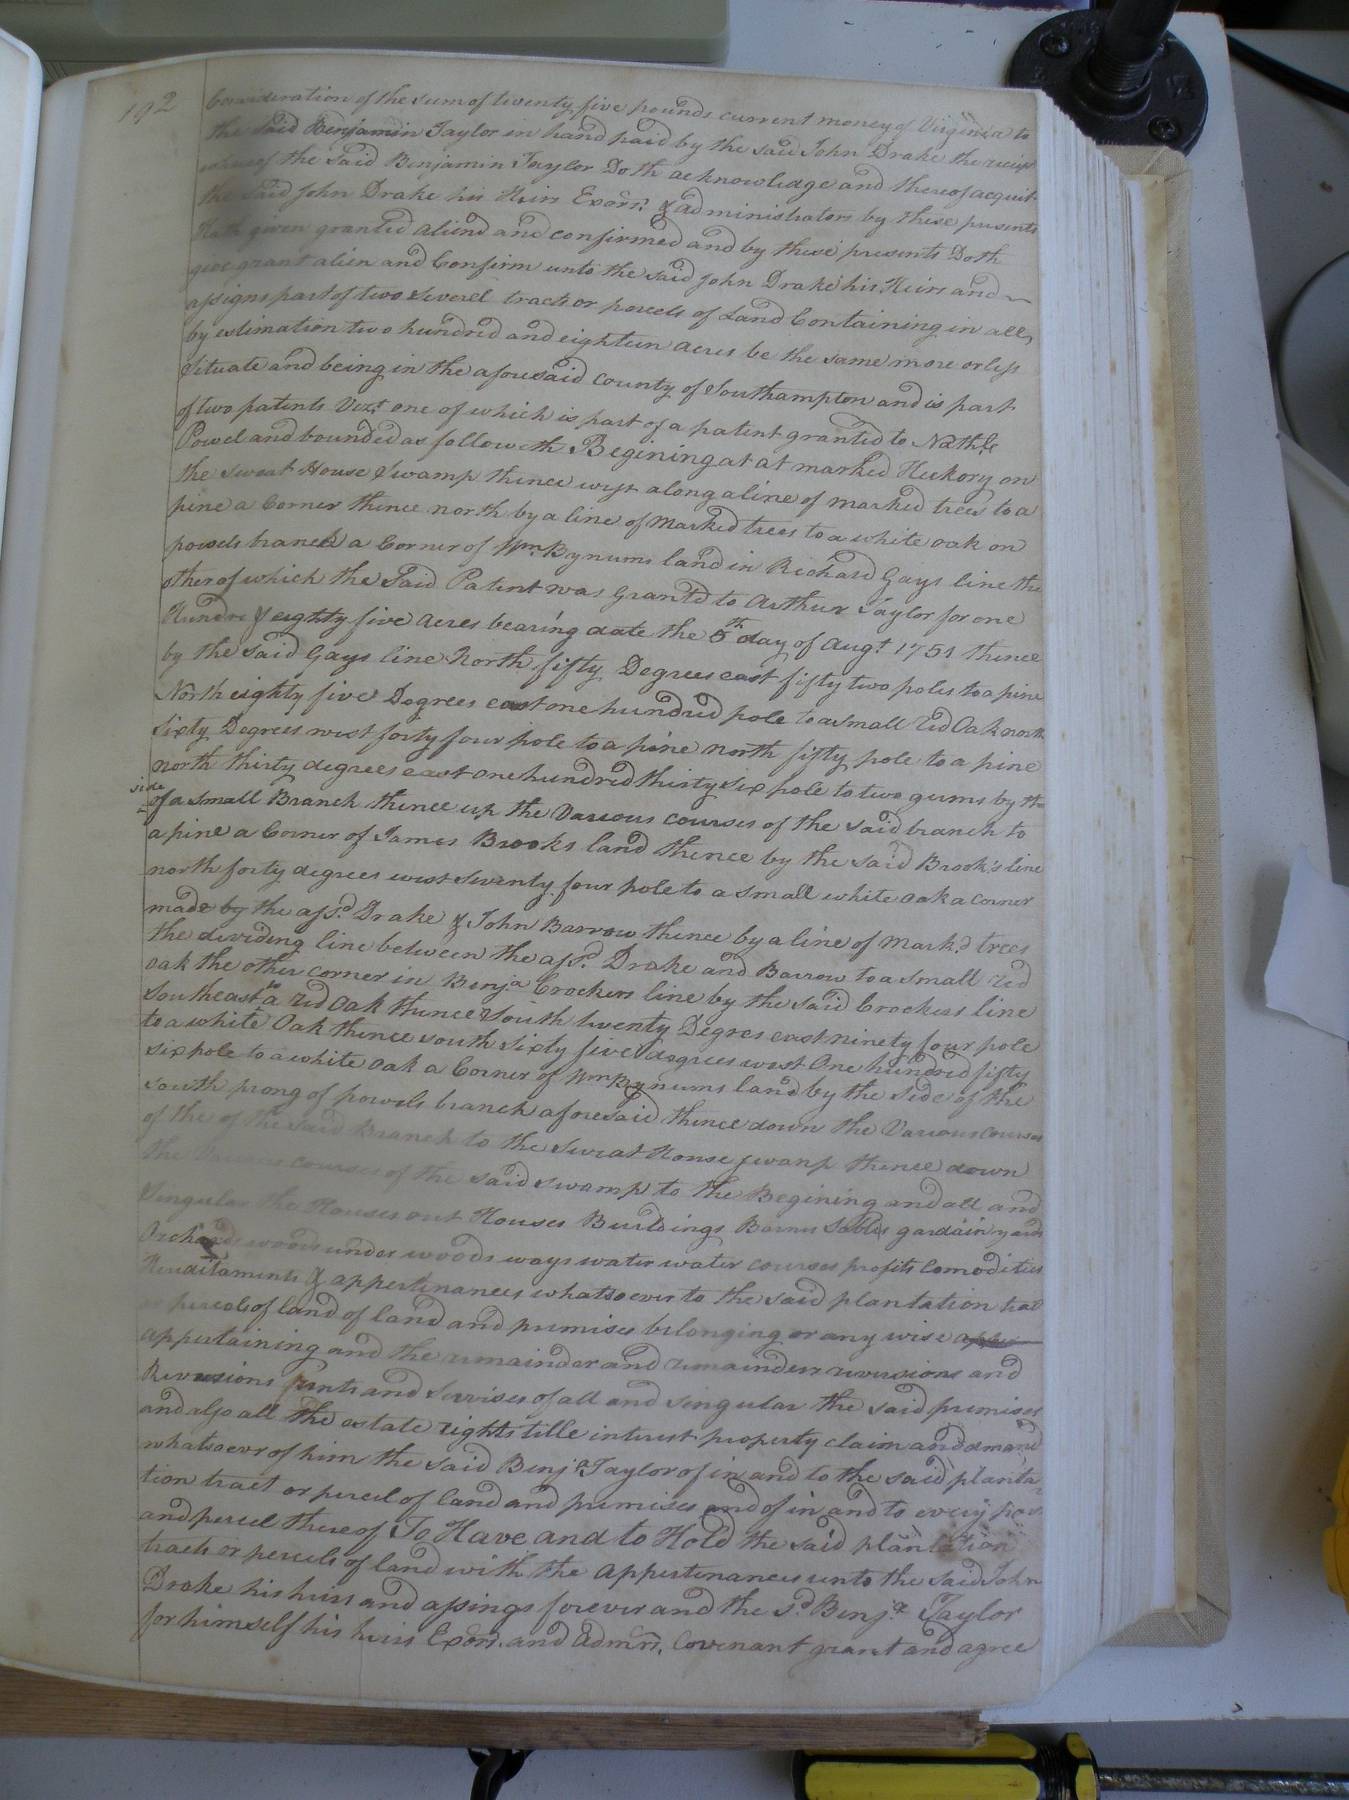 192
Consideration of the sum of twenty five pounds current money of Virginia to
the said Benjamin Taylor in hand paid by the said John Drake the receipt
whereof the said Benjamin Taylor Doth acknowledge and thereof acquit
the said John Drake his Heirs Exors. & administrators by these presents
Hath given granted aliend and confirmed and by these presents Doth
give grant alien and Confirm unto the said John Drake his Heirs and
assigns part of two several tracts or parcels of Land Containing in all,
by estimation two hundred and eighteen acres be the same more or less
Situate and being in the aforesaid county of Southampton and is part
of two patents Vizt. one of which is part of a patent granted to Nathl.
Powel and bounded as followeth Begining at at marked Hickory on
the Sweat House Swamp thence west along a line of marked trees to a
pine a Corner thence north by a line of marked trees to a white oak on
powels branch a Corner of Wm. Bynums land in Richard Gays line the
other of which the Said Patent was Grantd to Arthur Taylor for one
Hundre & eighty five acres bearing date the 5th day of Augt. 1751 thence
by the said Gays line North fifty Degrees east fifty two poles to a pine
North eighty five Degrees east one hundred pole to a small red Oak north
Sixty Degrees west forty four pole to a pine north fifty pole to a pine
north thirty degrees east one hundred thirty six pole to two gums by the
side
of a small Branch thence up the Various courses of the said branch to
a pine a Corner of James Brooks land thence by the said Brook's line
north forty degrees west seventy four pole to a small white oak a corner
made by the afsd. Drake & John Barrow thence by a line of markd. trees
the deviding line between the afsd. Drake and Barrow to a small red
oak the other corner in Benja. Crockers line by the said Crockers line
southeast to a red oak thence South twenty Degres east ninety four pole
to a white Oak thence south sixty five degrees west One hundred fifty
six pole to a white oak a Corner of Wm. Bynums land by the side of the
south prong of powels branch aforesaid thence down the Various courses
of the of the said Branch to the Sweat House swamp thence down
the Various courses of the said swamp to the Begining and all and
Singular the Houses out Houses Buildings Barns Stables gardain yards
Orchards woods under woods ways water water courses profits Comodities
Hereditaments & appertinances whatsoever to the said plantation
or percels of land of land and premises belonging or any wise
appertaining and the remainder and remainders reversions and
Reversions rents and Services of all and singular the said premises
and also all the estate rights title interest property claim and demand
whatsoevr of him the said Benja. Taylor of in and to the said planta
tion tract or percel of land and premises and of in and to every part
and percel thereof To Have and to Hold the said plantation
tracts or percels of land with the appertinances unto the said John
Drake his heirs and assings forever and the sd. Benja. Taylor
for himself his heirs Exors. and admrs. Covenant grant and agree